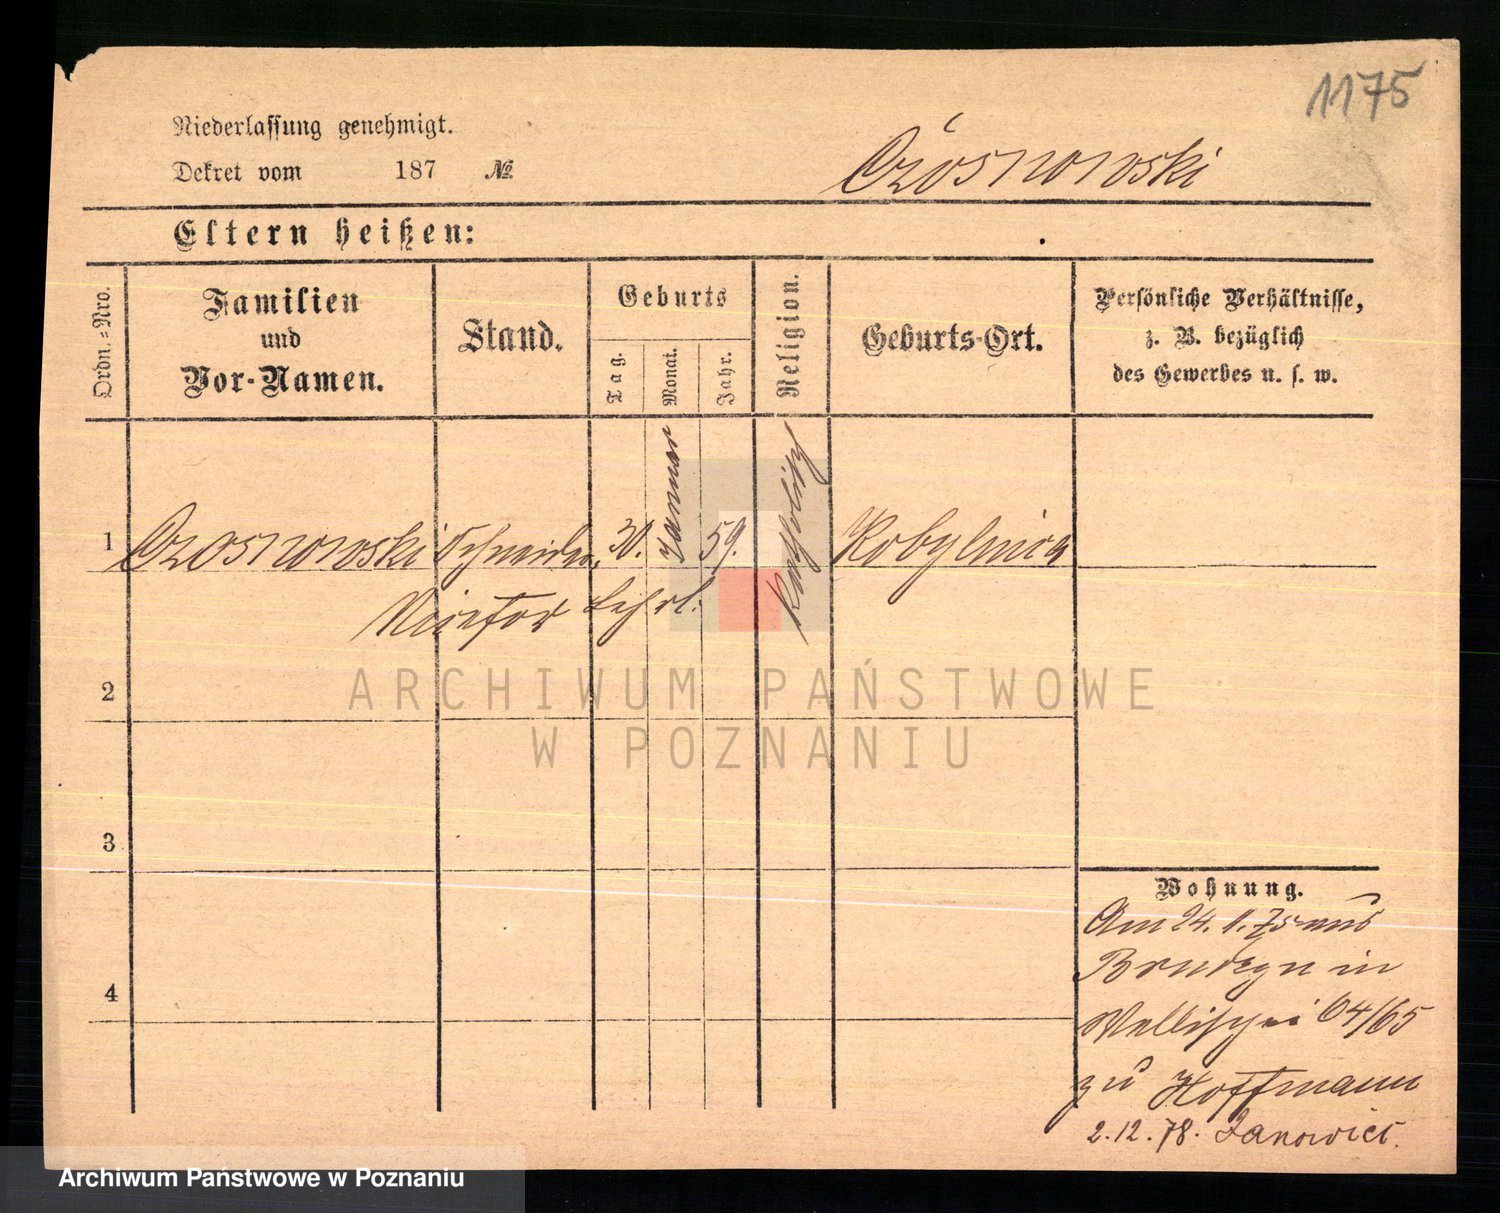 1175
Niederlassung genehmigt.
Dekret vom 187 №
Czósnowski
Eltern heißen:
Ordn.=Nro.
Familien
und
Vor-Namen.
Stand.
Geburts
Tag.
Monat.
Jahr.
Religion.
Geburts-Ort.
Persönliche Verhältnisse,
z. B. bezüglich
des Gewerbes u. s. w.
1 Czosnowski Schneider 30. Januar 59. Katholisch Kobylnica
Lehrl.
2
3
4
Wohnung.
Am 24. 1. 75 aus
in
Wallischei 64/65
zu Hoffmann
2.12.78. Janowiec.
ARCHIWUM PAŃSTWOWE
W POZNANIU
Archiwum Państwowe w Poznaniu